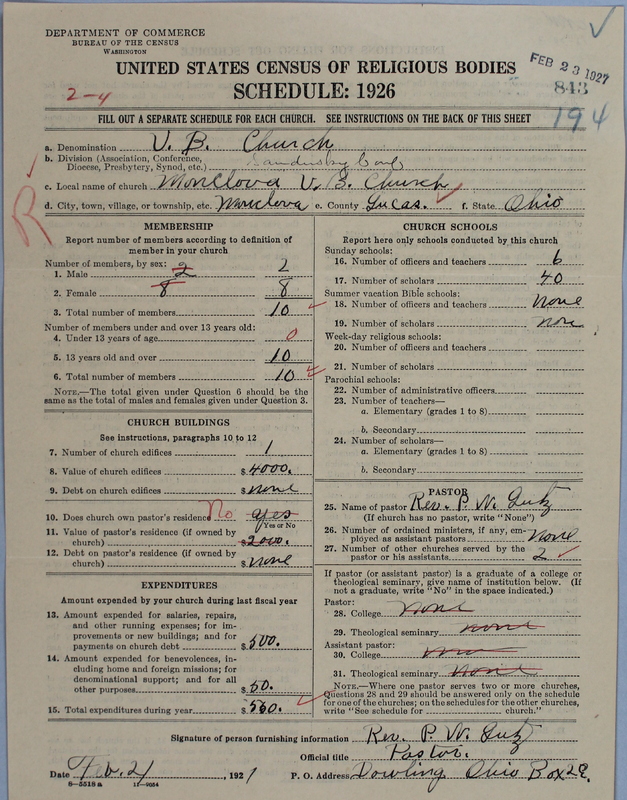 DEPARTMENT OF COMMERCE
BUREAU OF THE CENSUS
WASHINGTON
UNITED STATES CENSUS OF RELIGIOUS BODIES
SCHEDULE: 1926
FEB 23 1927
843
194
2-4
FILL OUT A SEPARATE SCHEDULE FOR EACH CHURCH. SEE INSTRUCTIONS ON THE BACK OF THIS SHEET
a. Denomination U. B. Church
b. Division (Association, Conference,
Diocese, Presbytery, Synod, etc.) Sandusky Conf
c. Local name of church Monclova U. B. Church
d. City, town, village, or township, etc. Monclova e. County Lucas. f. State Ohio
R
MEMBERSHIP
Report number of members according to definition of
member in your church
Number of members, by sex:
1. Male 2 2
2. Female 8 8
3. Total number of members 10
Number of members under and over 13 years old:
4. Under 13 years of age 0
5. 13 years old and over 10
6. Total number of members 10
NOTE.—The total given under Question 6 should be
same as the total of males and females given under Question 3.
CHURCH BUILDINGS
See instructions, paragraphs 10 to 12
7. Number of church edifices 1
8. Value of church edifices $4000.
9. Debt on church edifices $none
10. Does church own pastor's residence No yes
Yes or No
11. Value of pastor's residence (if owned by
church) $2000.
12. Debt on pastor's residence (if owned by
church) $none
EXPENDITURES
Amount expended by your church during last fiscal year
13. Amount expended for salaries, repairs,
and other running expenses; for im-
provements or new buildings; and for
payments on church debt $500.
14. Amount expended for benevolences, in-
cluding home and foreign missions; for
denominational support; and for all
other purposes $50.
15. Total expenditures during year $550.
CHURCH SCHOOLS
Report here only schools conducted by this church
Sunday schools:
16. Number of officers and teachers 6
17. Number of scholars 40
Summer vacation Bible schools:
18. Number of officers and teachers none
19. Number of scholars none
Week-day religious schools:
20. Number of officers and teachers
21. Number of scholars
Parochial schools:
22. Number of administrative officers
23. Number of teachers—
a. Elementary (grades 1 to 8)
b. Secondary
24. Number of scholars—
a. Elementary (grades 1 to 8)
b. Secondary
PASTOR
25. Name of pastor Rev. P. W. Lutz
(If church has no pastor, write "None")
26. Number of ordained ministers, if any, em-
ployed as assistant pastors none
27. Number of other churches served by the
pastor or his assistants 2
If pastor (or assistant pastor) is a graduate of a college or
theological seminary, give name of institution below. (If
not a graduate, write "No" in the space indicated.)
Pastor:
28. College none
29. Theological seminary none
Assistant pastor:
30. College none
31. Theological seminary none
NOTE.—Where one pastor serves two or more churches,
Questions 28 and 29 should be answered only on the schedule
for one of the churches; on the schedules for the other churches,
write "See schedule for church."
Signature of person furnishing information Rev. P. W. Lutz
Official title Pastor.
Date Feb. 21, 1927 P. O. Address Dowling Ohio Box 29.
8—5518 a 11—9034